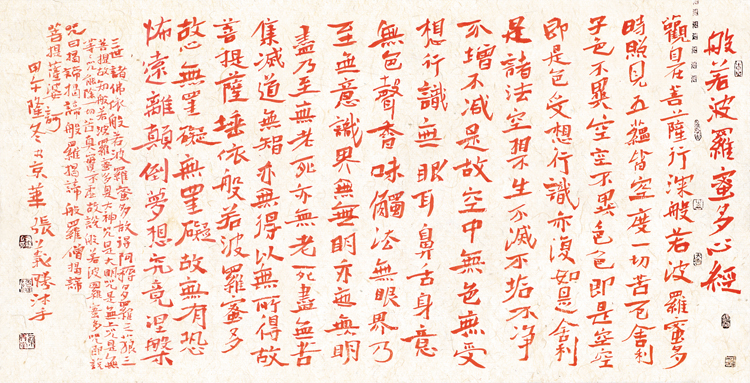 般若波羅蜜多心經
觀自在菩薩行深般若波羅蜜多
時照見五蘊皆空度一切苦厄舍利
子色不異空空不異色色即是空空
即是色受想行識亦復如是舍利
是諸法空相不生不滅不垢不淨
不增不減是故空中無色無受
想行識無眼耳鼻舌身意
無色聲香味觸法無眼界乃
至無意識界無無明亦無無明
盡乃至無老死亦無老死盡無苦
集滅道無智亦無得以無所得故
菩提薩埵依般若波羅蜜多
故心無罣礙無罣礙故無有恐
怖遠離顛倒夢想究竟涅槃
三世諸佛依般若波羅蜜多故得阿耨多羅三藐三
菩提故知般若波羅蜜多是大神咒是大明咒是無上咒是無
等等咒能除一切苦真實不虛故說般若波羅蜜多咒即說
咒曰揭諦揭諦般羅揭諦般羅僧揭諦
菩提薩婆訶
甲午隆冬於京華張義勝沐手